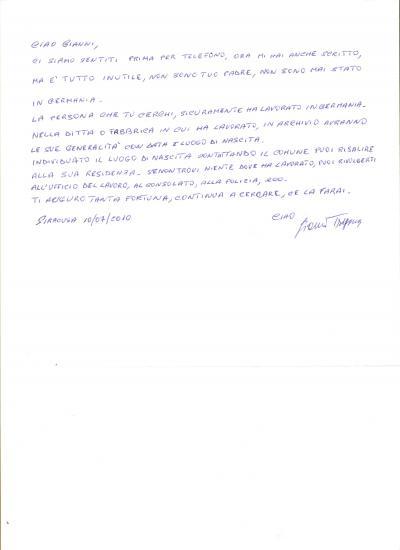 CIAO GIANNI,
CI SIAMO SENTITI PRIMA PER TELEFONO, ORA MI HAI ANCHE SCRITTO,
MA E' TUTTO INUTILE, NON SONO TUO PADRE, NON SONO MAI STATO
IN GERMANIA.
LA PERSONA CHE TU CERCHI, SICURAMENTE HA LAVORATO IN GERMANIA.
NELLA DITTA O FABBRICA IN CUI HA LAVORATO, IN ARCHIVIO AVRANNO
LE SUE GENERALITA' CON DATA E LUOGO DI NASCITA.
INDIVIDUATO IL LUOGO DI NASCITA CONTATTANDO IL COMUNE PUOI RISALIRE
ALLA SUA RESIDENZA. SE NON TROVI NIENTE DOVE HA LAVORATO, PUOI RIVOLGERTI
ALL'UFFICIO DEL LAVORO, AL CONSOLATO, ALLA POLIZIA, ECC.
TI AUGURO TANTA FORTUNA, CONTINUA A CERCARE, CE LA FARAI.
SIRACUSA 10/07/2010 CIAO